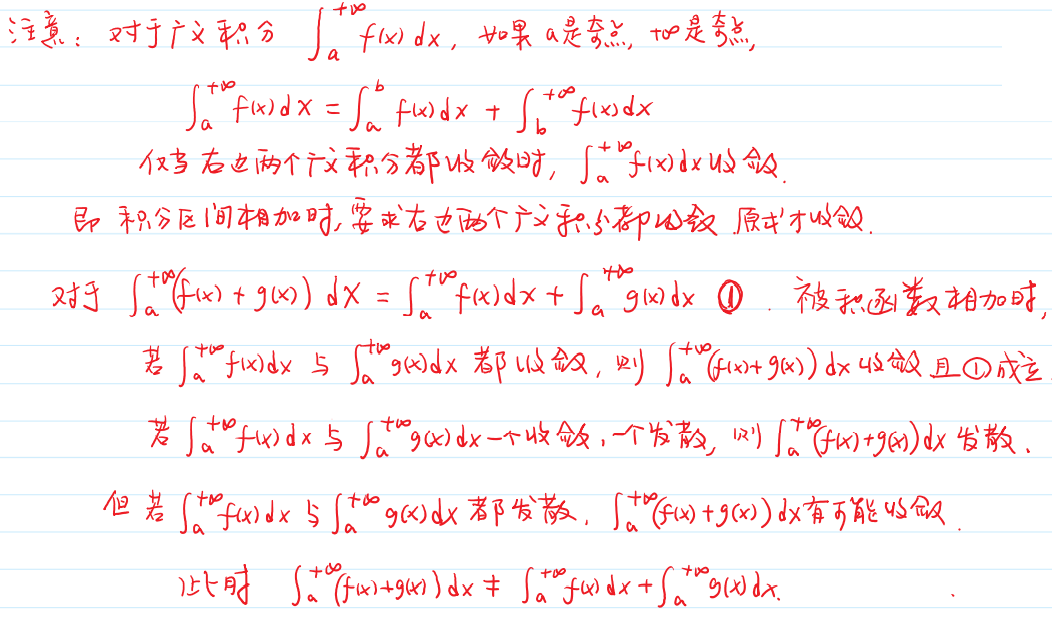 注意：对于广义积分 ∫_a^{+∞} f(x)dx，如果a是奇点，+∞是奇点，
∫_a^{+∞} f(x)dx = ∫_a^b f(x)dx + ∫_b^{+∞} f(x)dx
仅当右边两个广义积分都收敛时，∫_a^{+∞} f(x)dx收敛.
即积分区间相加时，要求右边两个广义积分都收敛.原式才收敛.
对于 ∫_a^{+∞} (f(x)+g(x))dx = ∫_a^{+∞} f(x)dx + ∫_a^{+∞} g(x)dx ①. 被积函数相加时，
若 ∫_a^{+∞} f(x)dx 与 ∫_a^{+∞} g(x)dx 都收敛，则 ∫_a^{+∞} (f(x)+g(x))dx收敛且①成立.
若 ∫_a^{+∞} f(x)dx 与 ∫_a^{+∞} g(x)dx一个收敛，一个发散，则 ∫_a^{+∞} (f(x)+g(x))dx 发散.
但若 ∫_a^{+∞} f(x)dx 与 ∫_a^{+∞} g(x)dx 都发散，∫_a^{+∞} (f(x)+g(x))dx有可能收敛.
此时 ∫_a^{+∞} (f(x)+g(x))dx ≠ ∫_a^{+∞} f(x)dx + ∫_a^{+∞} g(x)dx.